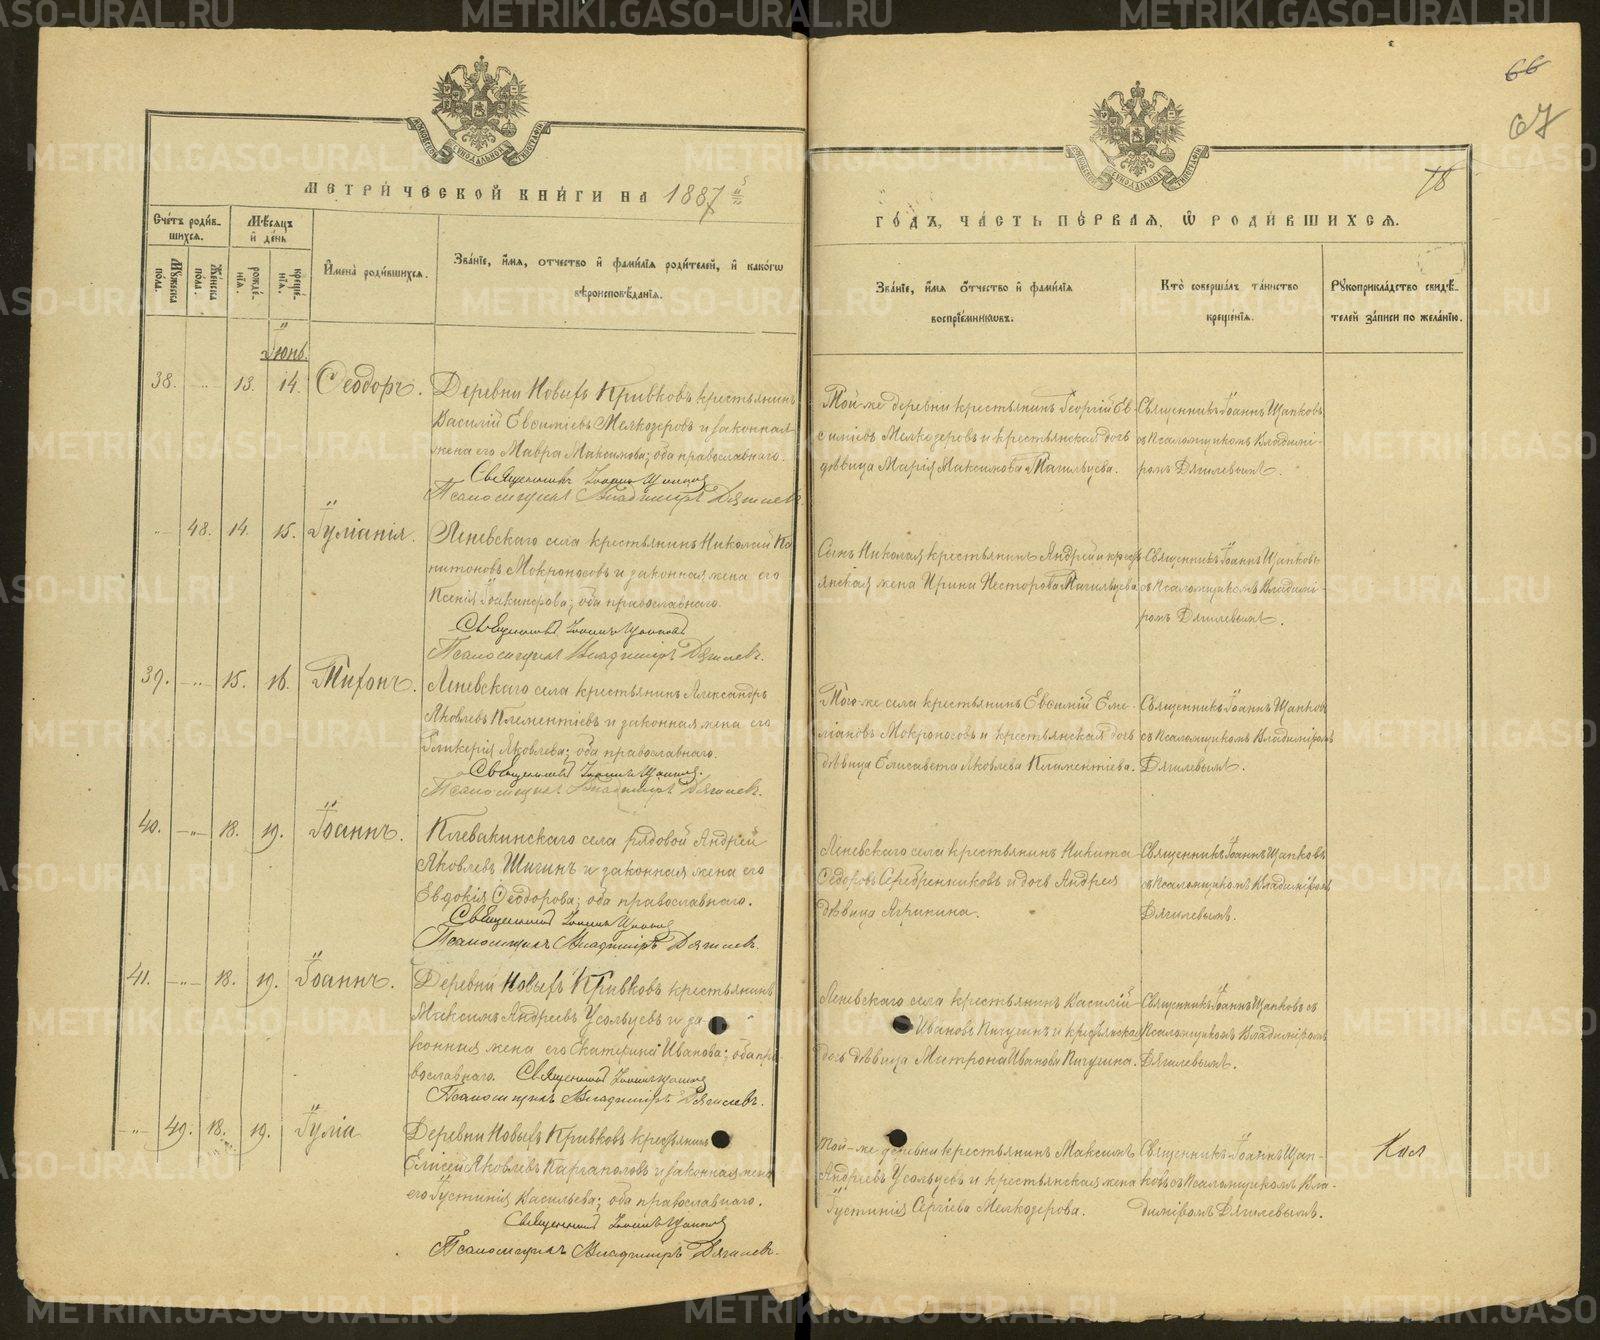 METRIKI.GASO-URAL.RU
66
67
78
МЕТРИ́ЧЕСКОЙ КНИ́ГИ НА 1887
ГО́ДЪ, ЧА́СТЬ ПЕ́РВАЯ, Ѡ РОДИ́ВШИХСЯ.
Сче́тъ роди́в-
шихся.
Мѣ́сяцъ
и҆ де́нь
Му́жеска
по́ла.
Же́нска
по́ла.
рожде́-
нїя.
креще́-
нїя.
И҆мена̀ роди́вшихся.
Зва́нїе, и҆́мя, ѻ҆́тчество и҆ фами́лїя роди́телей, и҆ како́гѡ
вѣроисповѣ́данїя.
Зва́нїе, и҆́мя ѻ҆́тчество и҆ фами́лїя
воспрїе́мниковъ.
Кто̀ соверша́лъ та́инство
креще́нїя.
Рꙋкоприкла́дство свидѣ́-
телей за́писи по жела́нїю.
Іюнь.
38. 13. 14. Ѳеодоръ.
Деревни Новыхъ Кривковъ крестьянинъ
Василій Евѳиміевъ Мелкозеровъ и законная
жена его Мавра Максимова; оба православнаго.
Священникъ Іоаннъ Щапковъ
Псаломщикъ Владиміръ Дягилевъ.
Той-же деревни крестьянинъ Георгій Ев-
ѳиміевъ Мелкозеровъ и крестьянская дочь
дѣвица Марія Максимова Тагильцева.
Священникъ Іоаннъ Щапковъ
съ Псаломщикомъ Владимі-
ромъ Дягилевымъ.
48. 14. 15. Іуліанія.
Леневскаго села крестьянинъ Николай Ка-
питоновъ Мокроносовъ и законная жена его
Ксенія Іоакинфова; оба православнаго.
Священникъ Іоаннъ Щапковъ
Псаломщикъ Владиміръ Дягилевъ.
Сынъ Николая крестьянинъ Андрей и кресть-
янская жена Ирина Несторова Тагильцева.
Священникъ Іоаннъ Щапковъ
съ Псаломщикомъ Владимі-
ромъ Дягилевымъ.
39. 15. 16. Тихонъ.
Леневскаго села крестьянинъ Александръ
Яковлевъ Клементіевъ и законная жена его
Гликерія Яковлева; оба православнаго.
Священникъ Іоаннъ Щапковъ.
Псаломщикъ Владиміръ Дягилевъ.
Того-же села крестьянинъ Евѳимій Еме-
ліановъ Мокроносовъ и крестьянская дочь
дѣвица Елисавета Яковлева Клементіева.
Священникъ Іоаннъ Щапковъ
съ Псаломщикомъ Владиміромъ
Дягилевымъ.
40. 18. 19. Іоаннъ.
Клевакинскаго села рядовой Андрей
Яковлевъ Шигинъ и законная жена его
Евдокія Ѳеодорова; оба православнаго.
Священникъ Іоаннъ Щапковъ
Псаломщикъ Владиміръ Дягилевъ.
Леневскаго села крестьянинъ Никита
Ѳедоровъ Серебренниковъ и дочь Андрея
дѣвица Агрипина.
Священникъ Іоаннъ Щапковъ
съ Псаломщикомъ Владиміромъ
Дягилевымъ.
41. 18. 19. Іоаннъ.
Деревни Новыхъ Кривковъ крестьянинъ
Максимъ Андреевъ Усольцевъ и за-
конная жена его Екатерина Иванова; оба пра-
вославнаго. Священникъ Іоаннъ Щапковъ
Псаломщикъ Владиміръ Дягилевъ.
Леневскаго села крестьянинъ Василій
Ивановъ Пичугинъ и крестьянская
дочь дѣвица Матрона Иванова Пичугина.
Священникъ Іоаннъ Щапковъ съ
Псаломщикомъ Владиміромъ
Дягилевымъ.
49. 18. 19. Іулія
Деревни Новыхъ Кривковъ крестьянинъ
Елисей Яковлевъ Каргаполовъ и законная жена
его Іустинія Васильева; оба православнаго.
Священникъ Іоаннъ Щапковъ
Псаломщикъ Владиміръ Дягилевъ.
Той-же деревни крестьянинъ Максимъ
Андреевъ Усольцевъ и крестьянская жена
Іустинія Сергіева Мелкозерова.
Священникъ Іоаннъ Щап-
ковъ съ Псаломщикомъ Вла-
диміромъ Дягилевымъ.